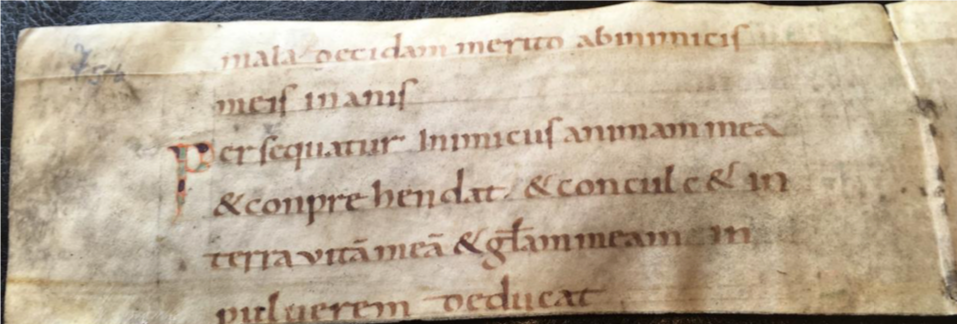 mala decidam merito abinimicis
meis inanis
Persequatur Inimicus animam meā
&conprehendat. &conculc& in
terra vitā meā &głam meam in
pulverem deducat